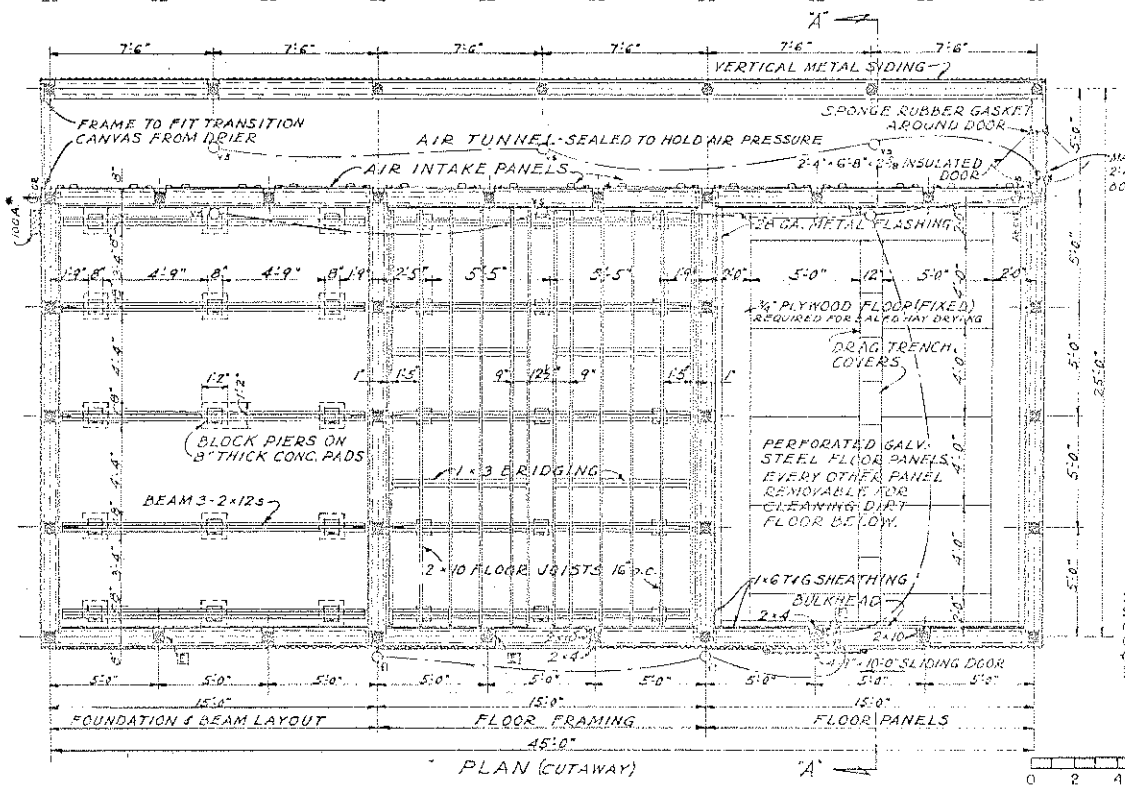 "A"
7'-6" 7'-6" 7'-6" 7'-6" 7'-6" 7'-6"
VERTICAL METAL SIDING
FRAME TO FIT TRANSITION
CANVAS FROM DRIER
AIR TUNNEL - SEALED TO HOLD AIR PRESSURE
SPONGE RUBBER GASKET
AROUND DOOR
INSULATED
DOOR
AIR INTAKE PANELS
28 GA. METAL FLASHING
1'-9" 8" 4'-9" 8" 4'-9" 8" 1'-9" 2'-5" 5'-5" 5'-5" 1'-9" 2'-0" 5'-0" 12" 5'-0" 2'-0"
3/4" PLYWOOD FLOOR (FIXED)
REQUIRED FOR BALED HAY DRYING
DRAG TRENCH
COVERS
1'-2" 1" 1'-5" 9" 12½" 9" 1'-5" 1"
1'-2"
BLOCK PIERS ON
8" THICK CONC. PADS
PERFORATED GALV.
STEEL FLOOR PANELS.
EVERY OTHER PANEL
REMOVABLE FOR
CLEANING DIRT
FLOOR BELOW.
1 x 3 BRIDGING
BEAM 3-2x12s
2 x 10 FLOOR JOISTS 16" o.c.
1x6 T&G SHEATHING
BULKHEAD
2x4
2x10
2x4
10'-0" SLIDING DOOR
5'-0" 5'-0" 5'-0" 5'-0" 5'-0" 5'-0" 5'-0" 5'-0" 5'-0"
15'-0" 15'-0" 15'-0"
FOUNDATION & BEAM LAYOUT FLOOR FRAMING FLOOR PANELS
45'-0"
PLAN (CUTAWAY)
"A"
5'-0"
5'-0"
5'-0"
5'-0"
5'-0"
25'-0"
0 2 4